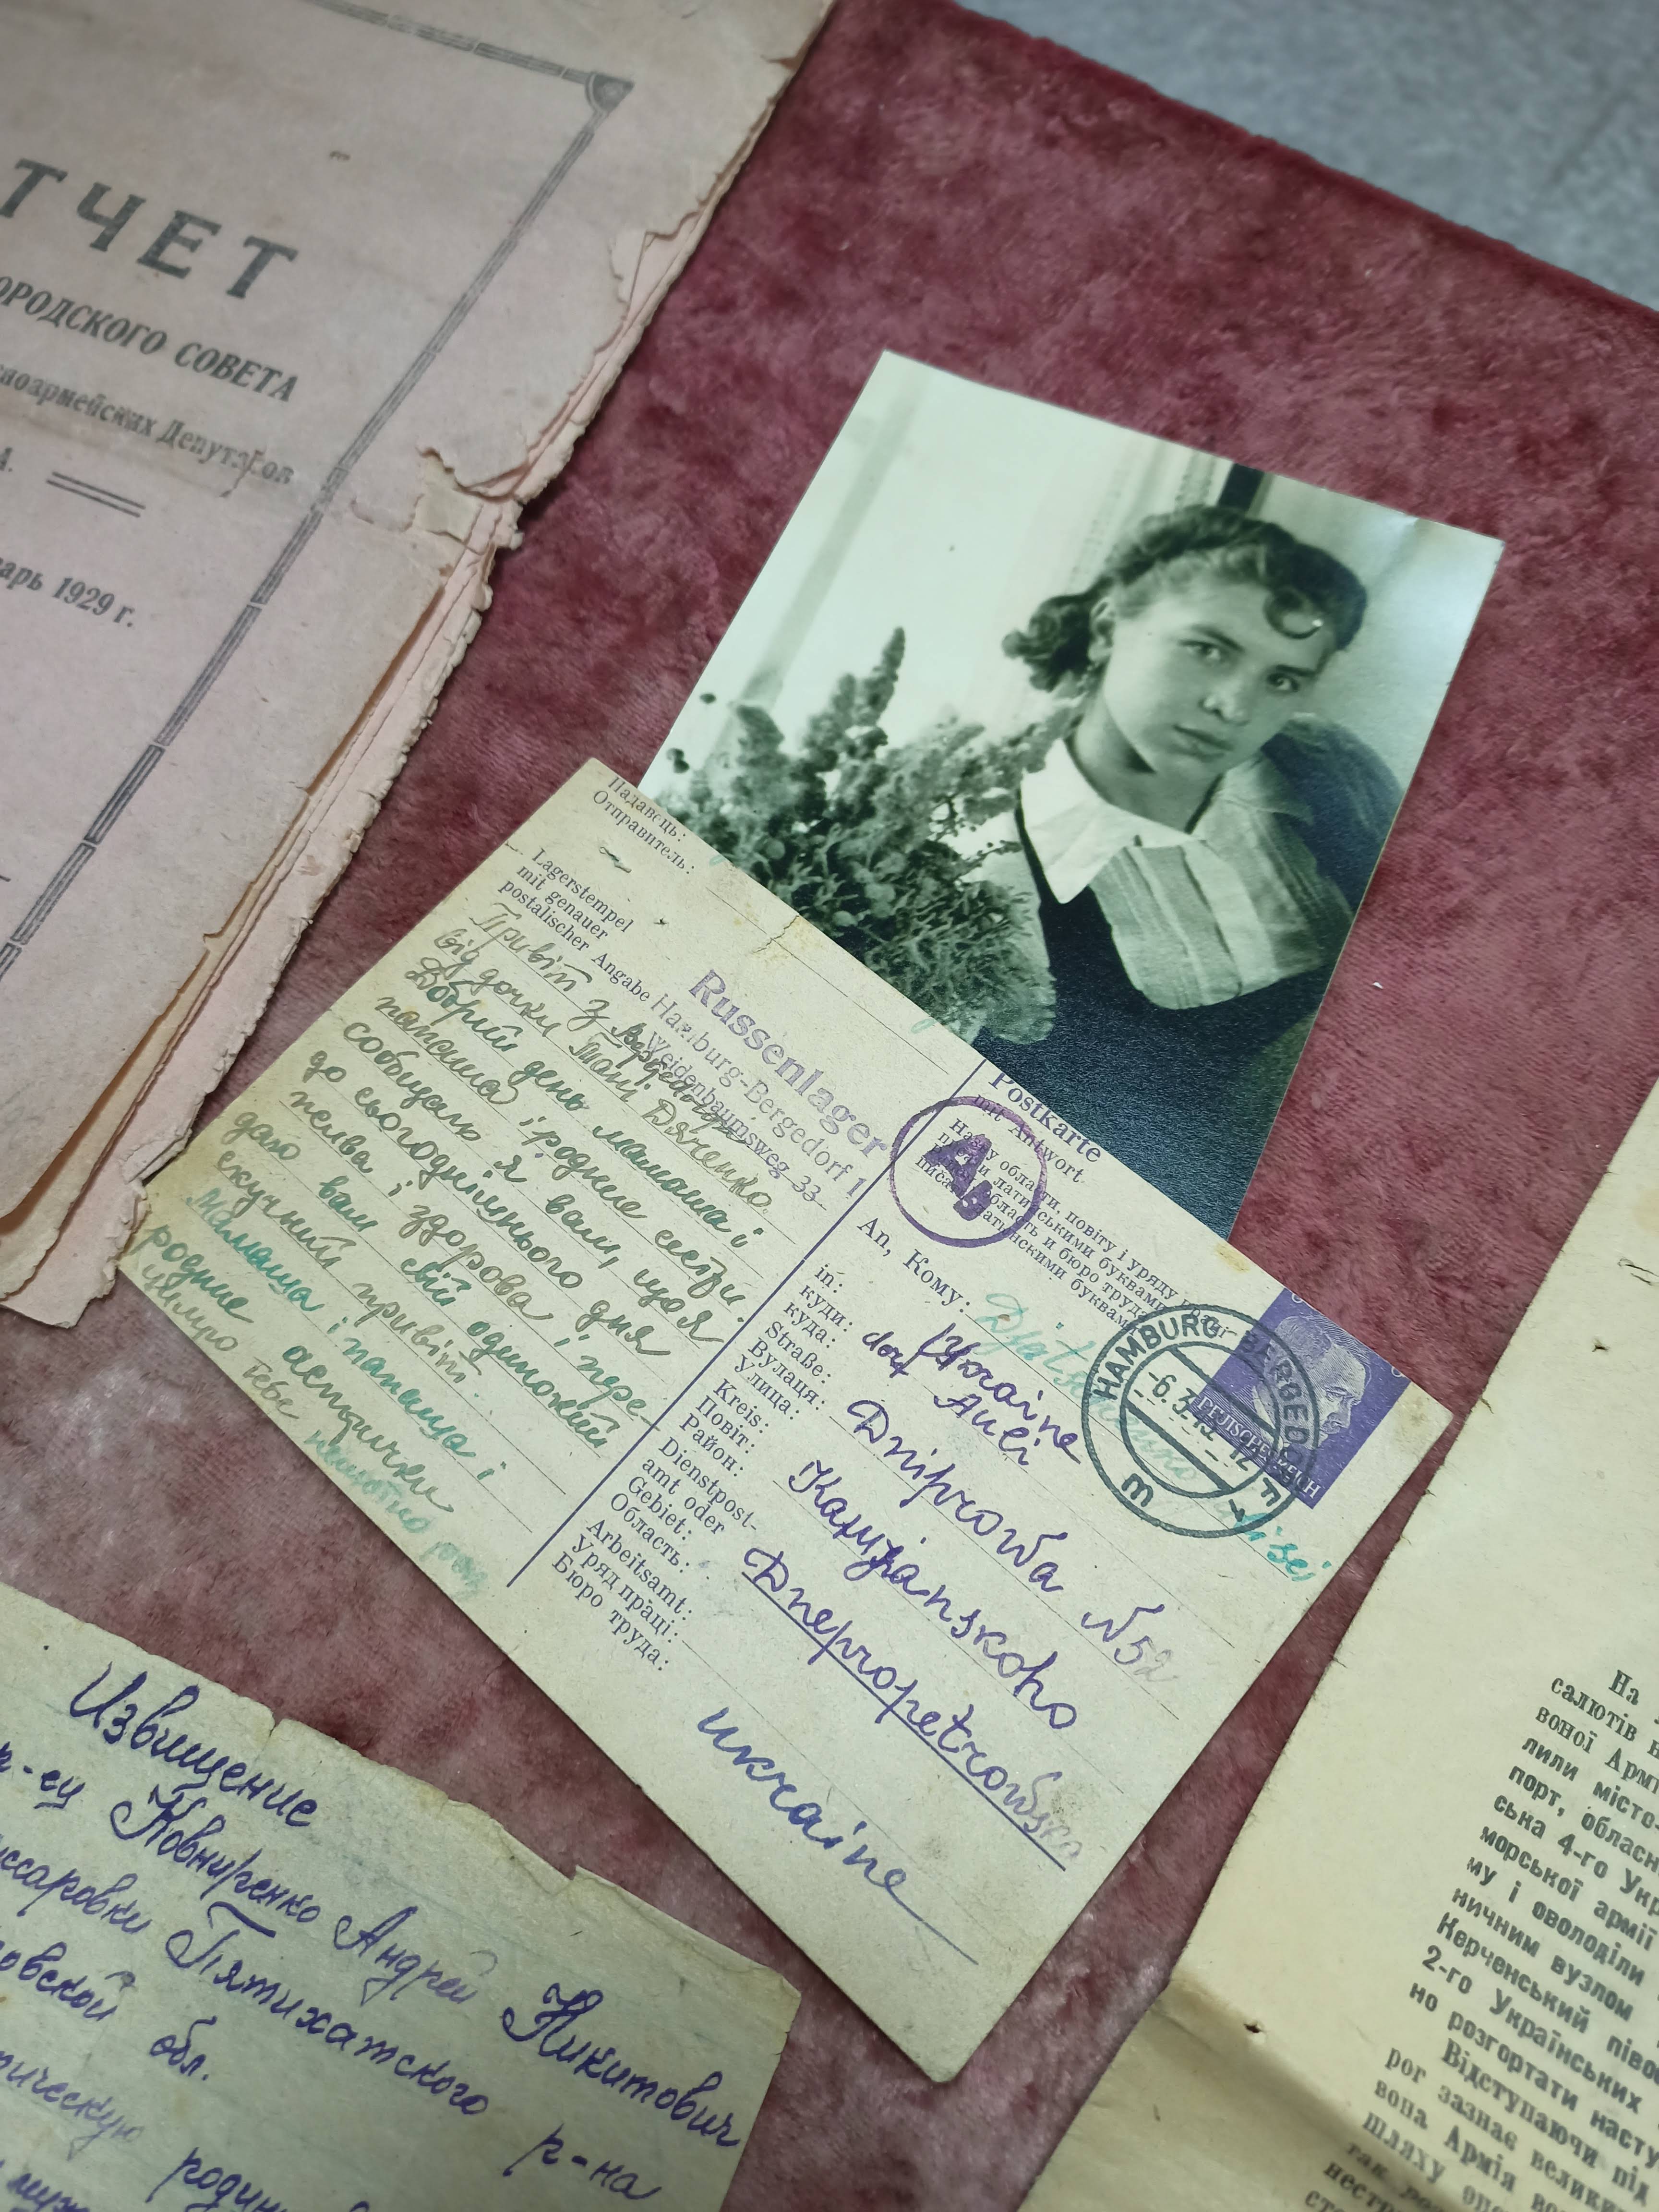 ТЧЕТ
ОРОДСКОГО СОВЕТА
сноармейских Депутатов
А.
варь 1929 г.
Падавець:
Отправитель:
Lagerstempel
mit genauer
postalischer Angabe
Russenlager
Hamburg-Bergedorf 1
Weidenbaumsweg 33
Привіт з
від дочки Тані Дяченко
Добрий день мамаша і
папаша і родние сестри.
сообщаю я вам, що я
до сьогоднішнього дня
жива і здорова і пере-
даю вам свій одинокий
скучний привіт.
Мамаша і папаша і
родние сестрички
щиро
Postkarte
mit Antwort
Назву области, повіту і уряду праці
писати латинськими буквами
область и бюро труда
латинскими буквами
A
An, Кому:
in:
куди:
куда:
Ukraine
dorf Auli
Straße:
Вулиця:
Улица:
Dniprowa N 52
Kreis:
Повіт:
Район:
Kamjanskoho
Dienstpost-
amt oder
Gebiet:
Область:
Dnepropetrowsko
Arbeitsamt:
Уряд праці:
Бюро труда:
ukraine
HAMBURG-BERGEDORF 1
-6.3.43.-12
m
DEUTSCHES REICH
Извищение
Ковниренко Андрей Никитович
Пятихатского р-на
овской обл.
родин
На
салютів
воної Армі
лили місто-
порт, обласн
ська 4-го Укр
морської армії
му і оволоділи
ничним вузлом
Керченський півос
2-го Українських
но розгортати насту
Відступаючи під
рог зазнає велик
вона Армія во
шляху
так
нест